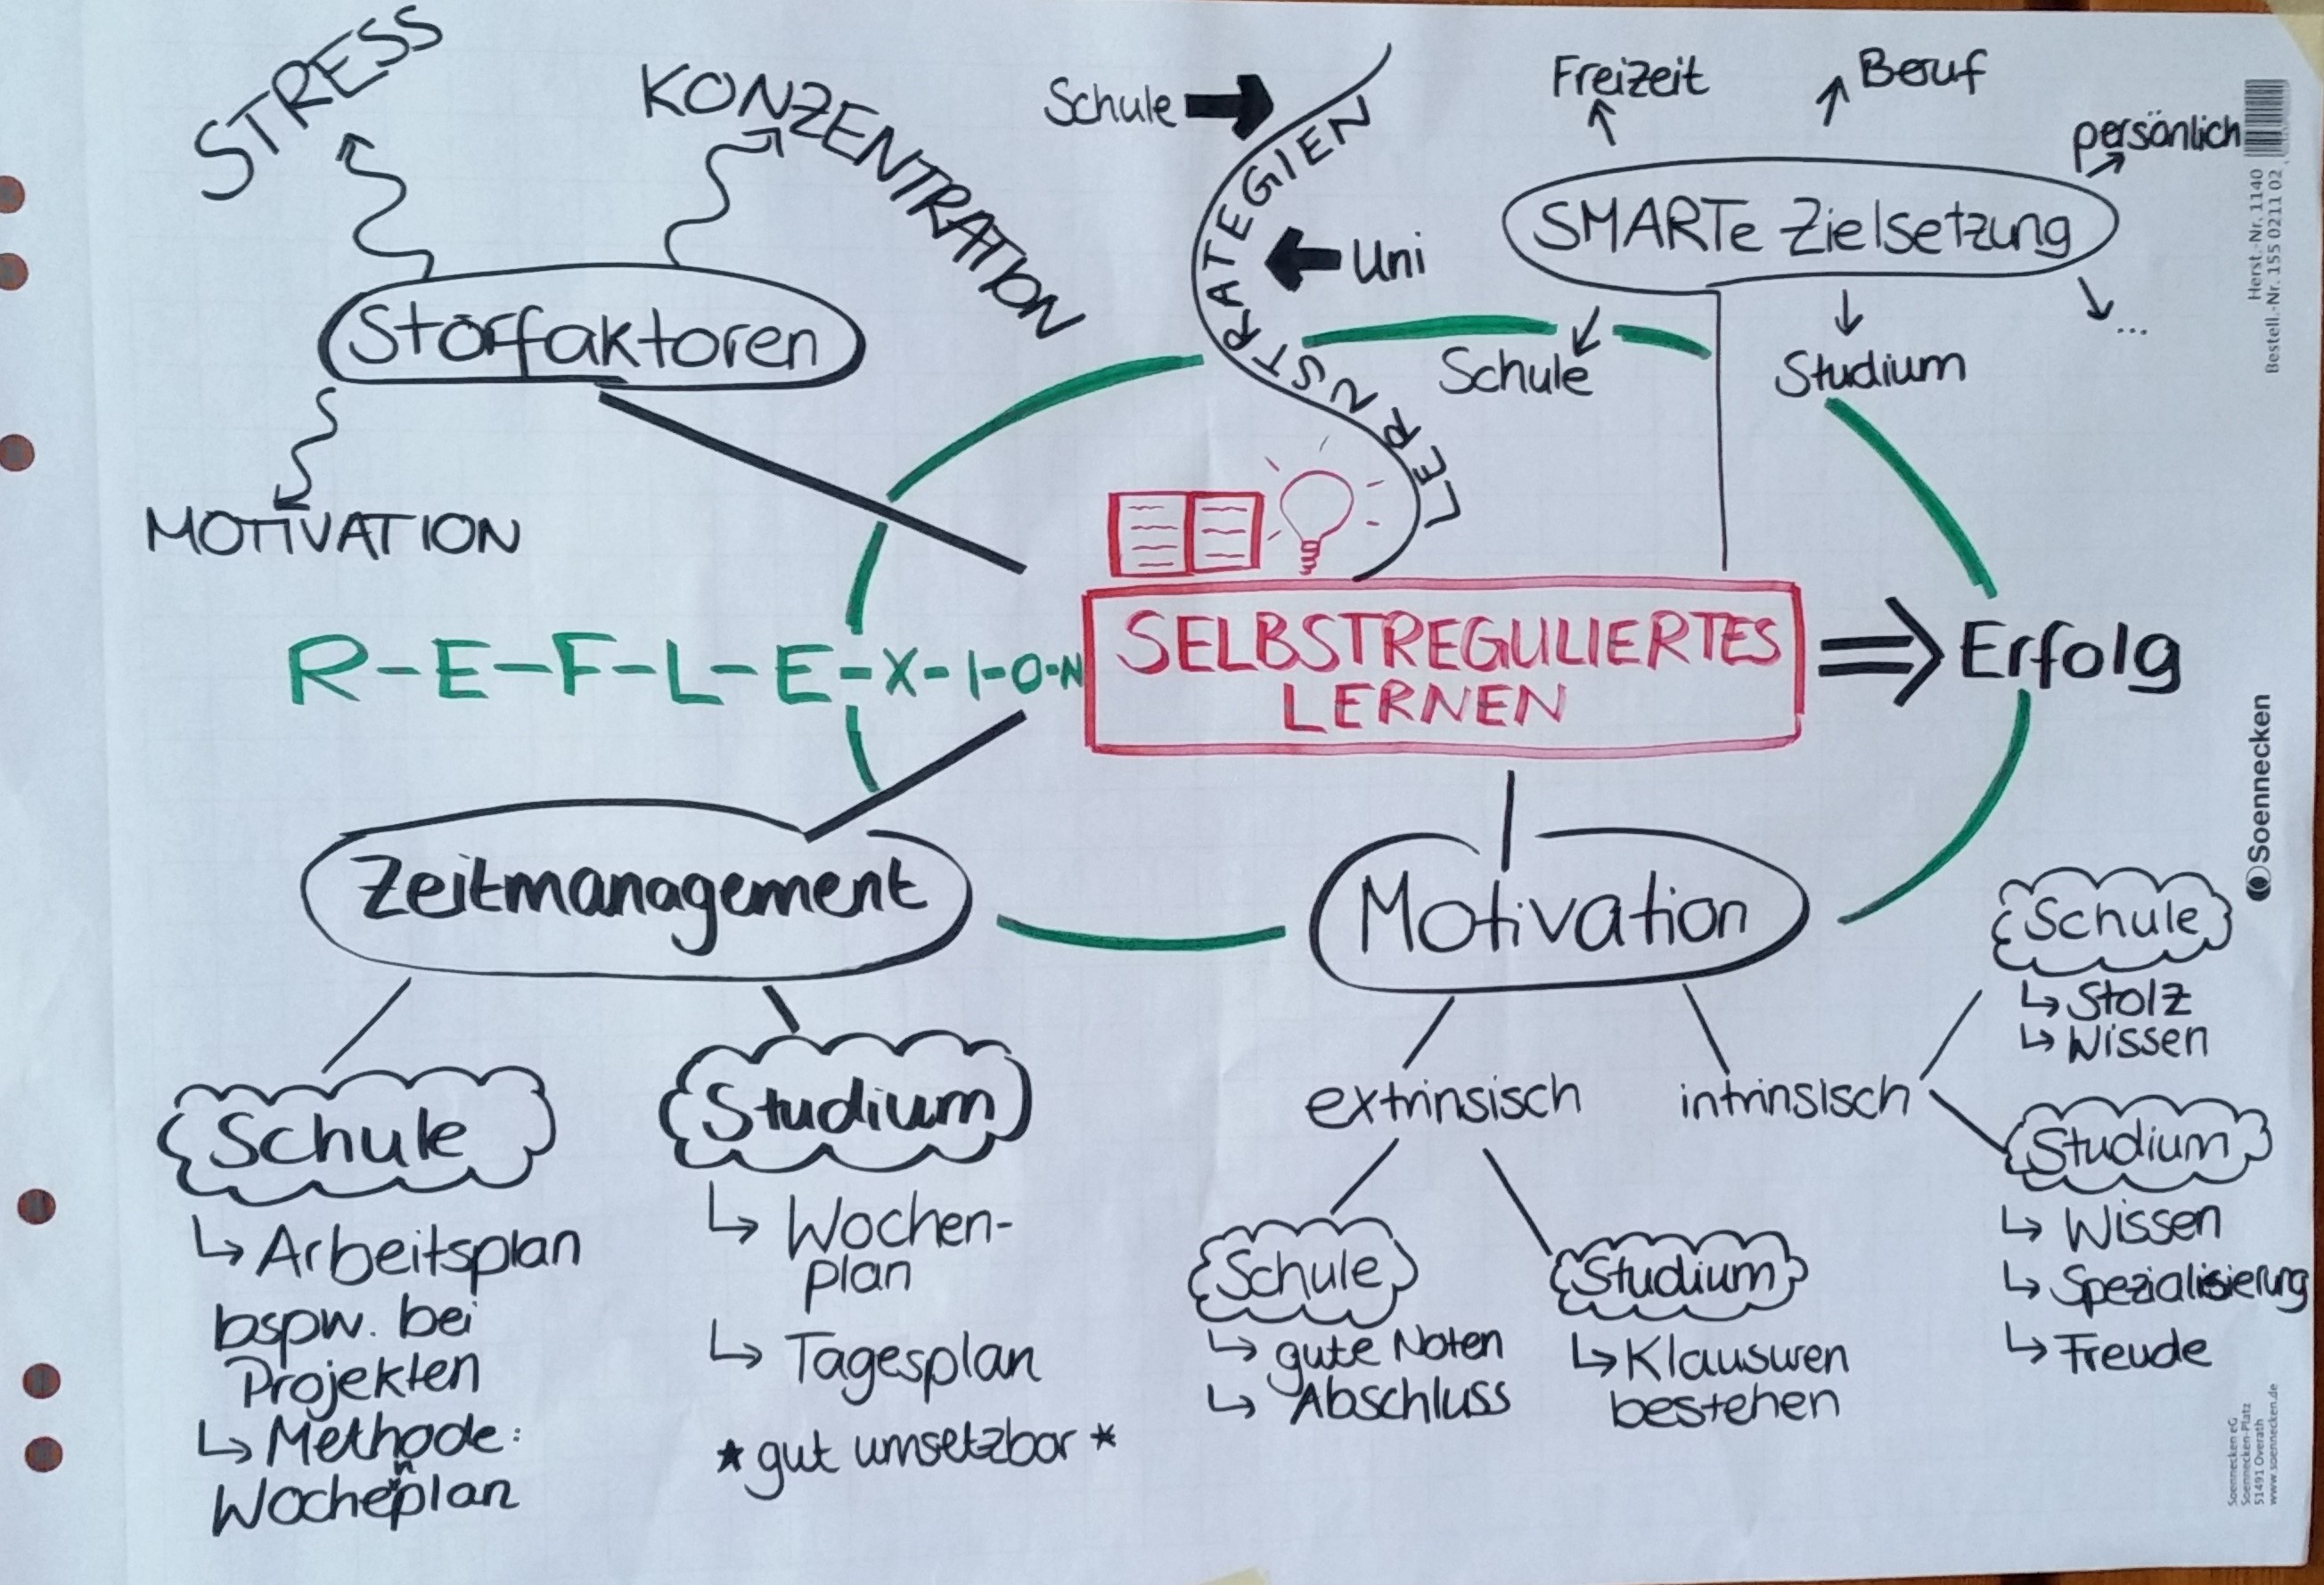 STRESS
KONZENTRATION
Störfaktoren
MOTIVATION
Schule
Uni
LERNSTRATEGIEN
Freizeit
Beruf
persönlich
SMARTe Zielsetzung
Schule
Studium
...
R-E-F-L-E-X-I-O-N
SELBSTREGULIERTES
LERNEN
Erfolg
Zeitmanagement
Schule
Arbeitsplan
bspw. bei
Projekten
Methode:
Wochenplan
Studium
Wochen-
plan
Tagesplan
*gut umsetzbar*
Motivation
extrinsisch
Schule
gute Noten
Abschluss
Studium
Klausuren
bestehen
intrinsisch
Schule
Stolz
Wissen
Studium
Wissen
Spezialisierung
Freude
Herst.-Nr. 1140
Bestell.-Nr. 155 0211 02
Soennecken
Soennecken eG
Soennecken-Platz
51491 Overath
www.soennecken.de